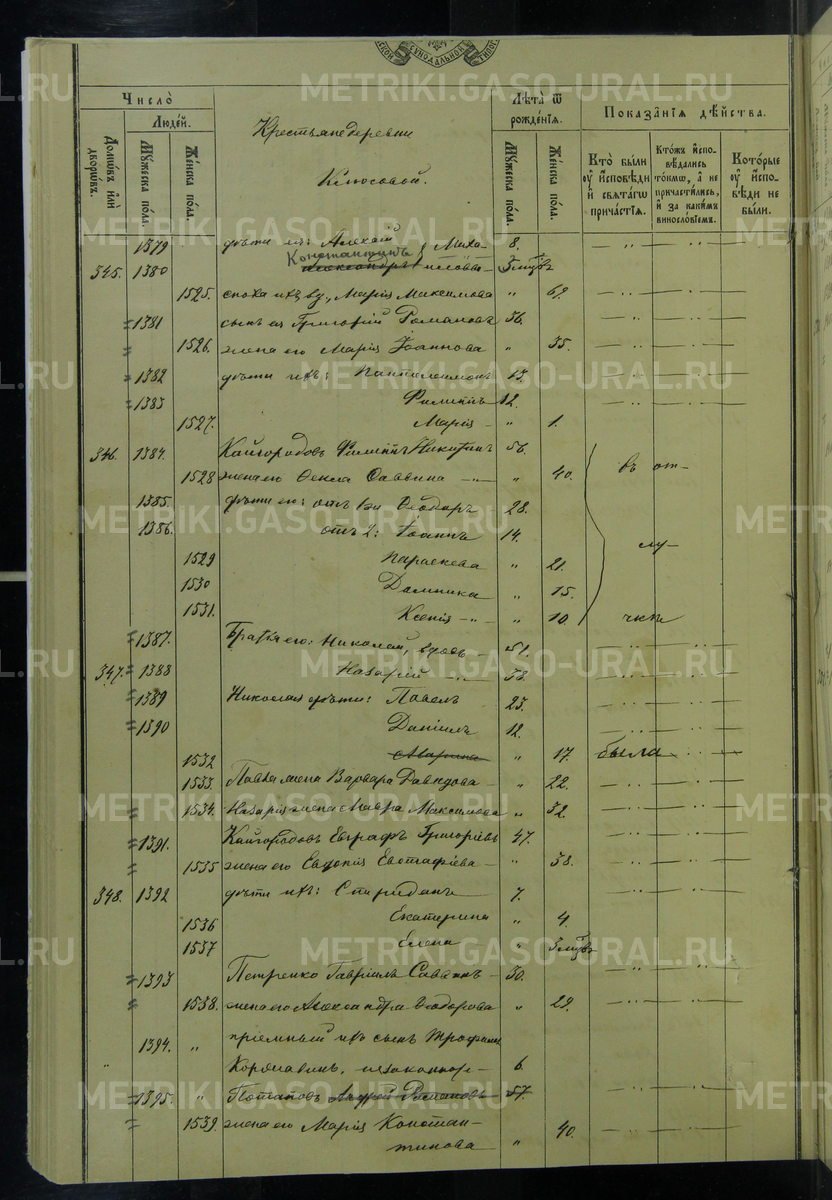 Число̀
Людей.
Домѡвъ или дворѡвъ.
Мꙋжеска пола.
Женска пола.
Крестьяне деревни
Клюсовой.
Лѣта ѿ рождения.
Мꙋжеска пола.
Женска пола.
Показанія дѣйства.
Кто были ꙋ исповѣди и свѧтагѡ причастія.
Ктожъ исповѣдались токмѡ, а не причастились, и за какимъ винословіемъ.
Которые ꙋ исповѣди не были.
1379 дѣти ихъ: Алексій Миха- 8.
345. 1380 Константинъ иловы 3 мцѣв
1525. сноха ихъ вд., Марія Максимова " 69.
1381 сынъ ея Григорій Романовъ 36.
1526. жена его Марія Іоаннова " 35.
1382 дѣти ихъ: Пантелеимонъ 13.
1383 Филиппъ 12.
1527. Марія " 1.
346. 1384. Кайгородовъ Филиппъ Никитинъ 56.
1528 жена его Фекла Саввина " 40. въ от-
1385. дѣти его: отъ Ѳеодоръ 28.
1386. отъ 2: Іоаннъ 14. лу-
1529 Параскева " 21.
1530 Домника " 15.
1531. Ксенія " 10. чкѣ
1387. Братья его: Николай, вдовъ 51.
347. 1388 Назарій 33.
1389 Николая дѣти: Павелъ 23.
1390 Даніилъ 12.
1532 Марина " 17. была
1533. Павла жена Варвара Давидова " 22.
1534. Назарія жена Мавра Максимова " 32.
1391. Кайгородовъ Евграфъ Григорьевъ 47.
1535 жена его Евдокія Евстафіева " 38.
348. 1392 дѣти ихъ: Спиридонъ 7.
1536 Екатерина " 4.
1537 Елена " 3 мцѣв
1393 Петренко Гавріилъ Саввинъ 30.
1538. жена его Александра Ѳеодорова " 29.
1394. " пріемный ихъ сынъ Трофимъ
" незаконнор- 6.
1395. " Потаповъ Андрей Романовъ 57.
1539. жена его Марія Констан-
тинова " 40.
METRIKI.GASO-URAL.RU